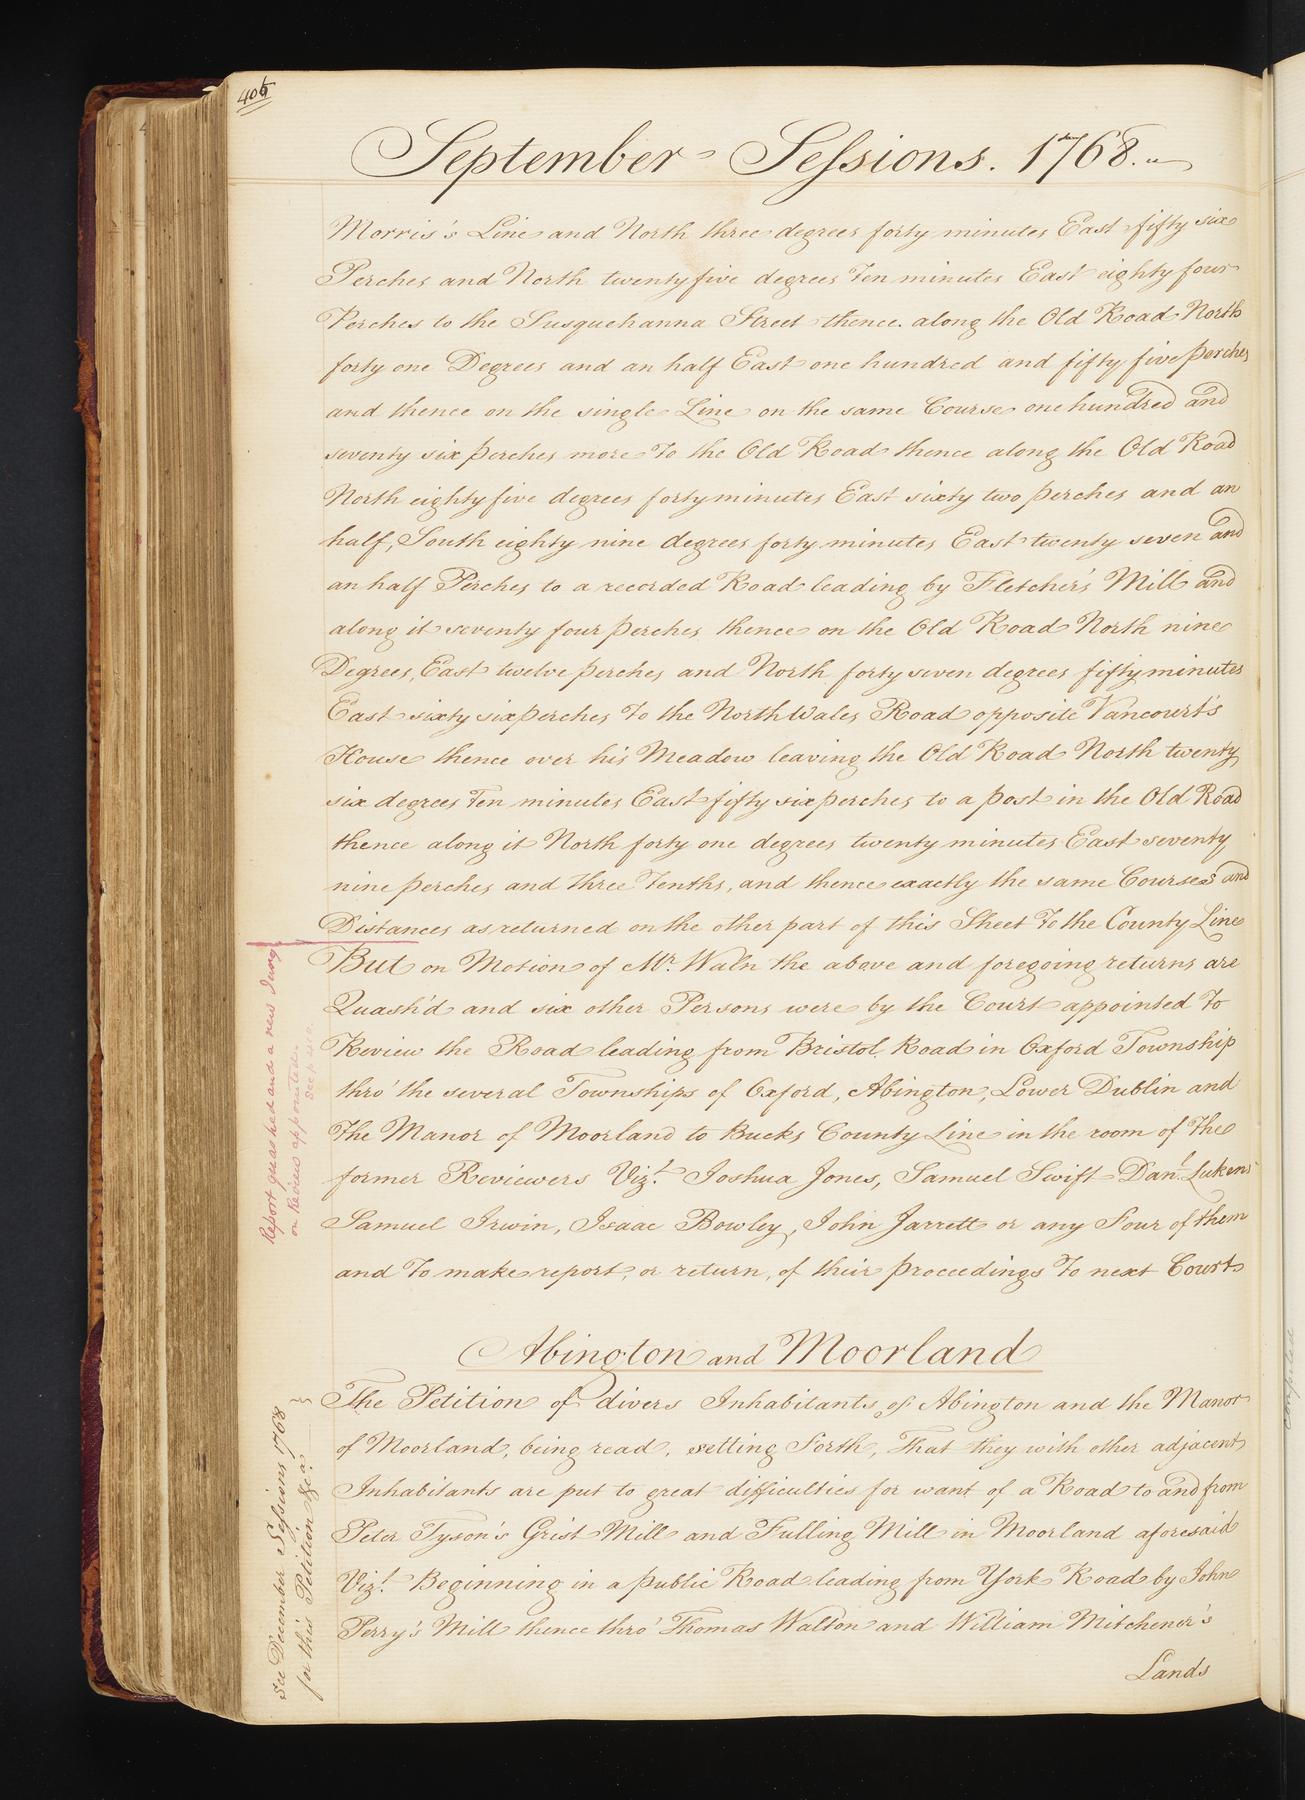 406
September Sessions. 1768.
Morris's Line and North three degrees forty minutes East fifty six
Perches and North twenty five degrees Ten minutes East eighty four
Perches to the Susquehanna Street thence along the Old Road North
forty one Degrees and an half East one hundred and fifty five perches
and thence on the single Line on the same Course one hundred and
seventy six perches more To the Old Road thence along the Old Road
North eighty five degrees forty minutes East sixty two perches and an
half, South eighty nine degrees forty minutes East twenty seven and
an half Perches to a recorded Road leading by Fletcher's Mill and
along it seventy four perches thence on the Old Road North nine
Degrees, East twelve perches and North forty seven degrees fifty minutes
East sixty six perches To the North Wales Road opposite Vancourt's
House thence over his Meadow leaving the Old Road North twenty
six degrees Ten minutes East fifty six perches to a post in the Old Road
thence along it North forty one degrees twenty minutes East seventy
nine perches and three Tenths, and thence exactly the same Courses and
Distances as returned on the other part of this Sheet To the County Line
But on Motion of Mr. Waln the above and foregoing returns are
Quash'd and six other Persons were by the Court appointed To
Review the Road leading from Bristol Road in Oxford Township
thro' the several Townships of Oxford, Abington, Lower Dublin and
The Manor of Moorland to Bucks County Line in the room of The
former Reviewers Vizt. Joshua Jones, Samuel Swift Danl. Lukens
Samuel Irwin, Isaac Bowley, John Jarrett or any Four of them
and To make report, or return, of their proceedings To next Court
Report quashed and a new Jury
on Review appointed.
See p 410.
Abington and Moorland
The Petition of divers Inhabitants of Abington and the Manor
of Moorland, being read, setting Forth, That they with other adjacent
Inhabitants are put to great difficulties for want of a Road to and from
Peter Tyson's Grist Mill and Fulling Mill in Moorland aforesaid
Vizt. Beginning in a public Road leading from York Road by John
Perry's Mill thence thro' Thomas Walton and William Mitchener's
Lands
See December Sessions 1768
for this Petition &ca.